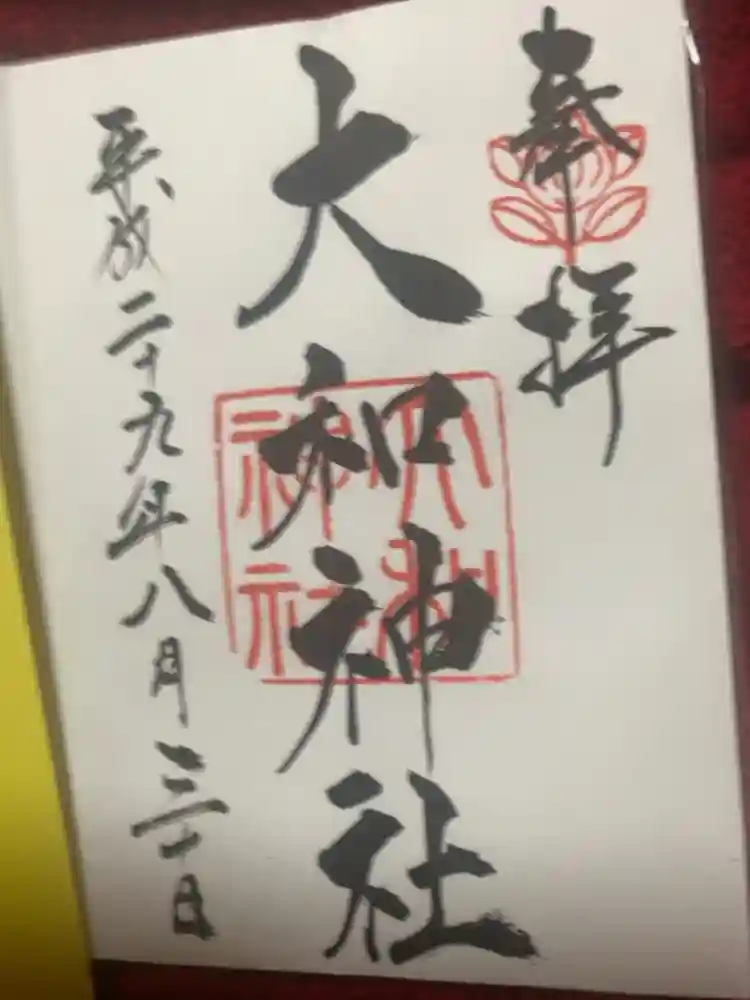 奉拝
大和神社
大和神社
平成二十九年八月三十日